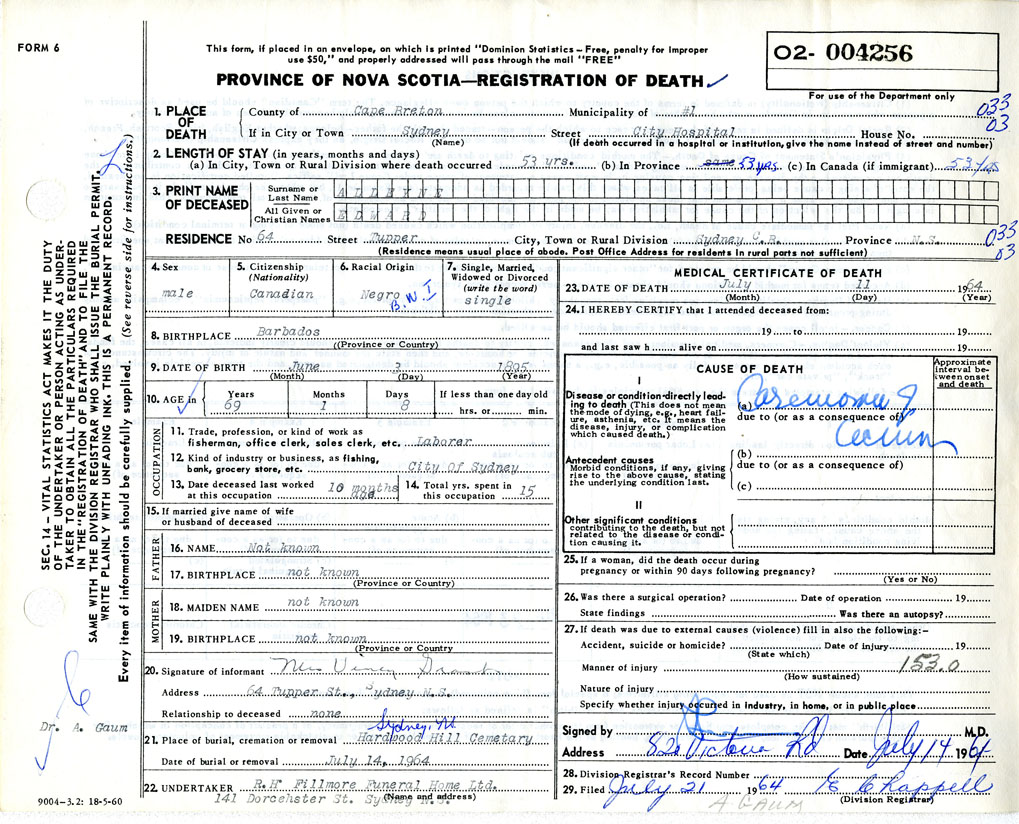 FORM 6
This form, if placed in an envelope, on which is printed "Dominion Statistics – Free, penalty for improper
use $50," and properly addressed will pass through the mail "FREE"
PROVINCE OF NOVA SCOTIA—REGISTRATION OF DEATH
O2- 004256
For use of the Department only
1. PLACE OF DEATH
County of Cape Breton Municipality of #1 033
If in City or Town Sydney Street City Hospital House No. 03
(Name) (If death occurred in a hospital or institution, give the name instead of street and number)
2. LENGTH OF STAY (in years, months and days)
(a) In City, Town or Rural Division where death occurred 53 yrs. (b) In Province same 53 yrs. (c) In Canada (if immigrant) 53 yrs
3. PRINT NAME OF DECEASED
Surname or Last Name ALLEYNE
All Given or Christian Names EDWARD
RESIDENCE No 64 Street Tupper City, Town or Rural Division Sydney C.B. Province N.S. 033
03
(Residence means usual place of abode. Post Office Address for residents in rural parts not sufficient)
4. Sex
male
5. Citizenship (Nationality)
Canadian
6. Racial Origin
Negro
B.W.I
7. Single, Married, Widowed or Divorced (write the word)
single
8. BIRTHPLACE Barbados
(Province or Country)
9. DATE OF BIRTH June 3 1895
(Month) (Day) (Year)
10. AGE in Years Months Days If less than one day old
69 1 8 hrs. or min.
OCCUPATION
11. Trade, profession, or kind of work as
fisherman, office clerk, sales clerk, etc. Laborer
12. Kind of industry or business, as fishing,
bank, grocery store, etc. City Of Sydney
13. Date deceased last worked at this occupation 10 months ago
14. Total yrs. spent in this occupation 15
15. If married give name of wife
or husband of deceased
FATHER
16. NAME Not known
17. BIRTHPLACE not known
(Province or Country)
MOTHER
18. MAIDEN NAME not known
19. BIRTHPLACE not known
(Province or Country
20. Signature of informant Mrs Grant
Address 64 Tupper St., Sydney N.S.
Relationship to deceased none
Sydney, NS
21. Place of burial, cremation or removal Hardwood Hill Cemetary
Date of burial or removal July 14, 1964
22. UNDERTAKER R.H Fillmore Funeral Home Ltd.
141 Dorchester St. Sydney N.S.
(Name and address)
MEDICAL CERTIFICATE OF DEATH
23. DATE OF DEATH July 11 1964
(Month) (Day) (Year)
24. I HEREBY CERTIFY that I attended deceased from:
19 to 19
and last saw h alive on 19
CAUSE OF DEATH
Approximate interval between onset and death
I
Disease or condition directly leading to death (This does not mean the mode of dying, e.g., heart failure, asthenia, etc. It means the disease, injury, or complication which caused death.)
(a) Carcinoma of
due to (or as a consequence of)
Cecum
Antecedent causes
Morbid conditions, if any, giving rise to the above cause, stating the underlying condition last.
(b)
due to (or as a consequence of)
(c)
II
Other significant conditions
contributing to the death, but not related to the disease or condition causing it.
25. If a woman, did the death occur during
pregnancy or within 90 days following pregnancy?
(Yes or No)
26. Was there a surgical operation? Date of operation 19
State findings Was there an autopsy?
27. If death was due to external causes (violence) fill in also the following:–
Accident, suicide or homicide? Date of injury 19
(State which)
Manner of injury 153.0
(How sustained)
Nature of injury
Specify whether injury occurred in industry, in home, or in public place
Signed by M.D.
Address 520 Victoria Rd Date July 14 1964
28. Division Registrar's Record Number
29. Filed July 21 1964 E Chappell
A GAUM (Division Registrar)
SEC. 14 – VITAL STATISTICS ACT MAKES IT THE DUTY
OF THE UNDERTAKER OR PERSON ACTING AS UNDER-
TAKER TO OBTAIN ALL THE PARTICULARS REQUIRED
IN THE "REGISTRATION OF DEATH" AND TO FILE THE
SAME WITH THE DIVISION REGISTRAR WHO SHALL ISSUE THE BURIAL PERMIT.
WRITE PLAINLY WITH UNFADING INK. THIS IS A PERMANENT RECORD.
Every item of information should be carefully supplied. (See reverse side for instructions.)
Dr. A. Gaum
9004–3.2: 18-5-60